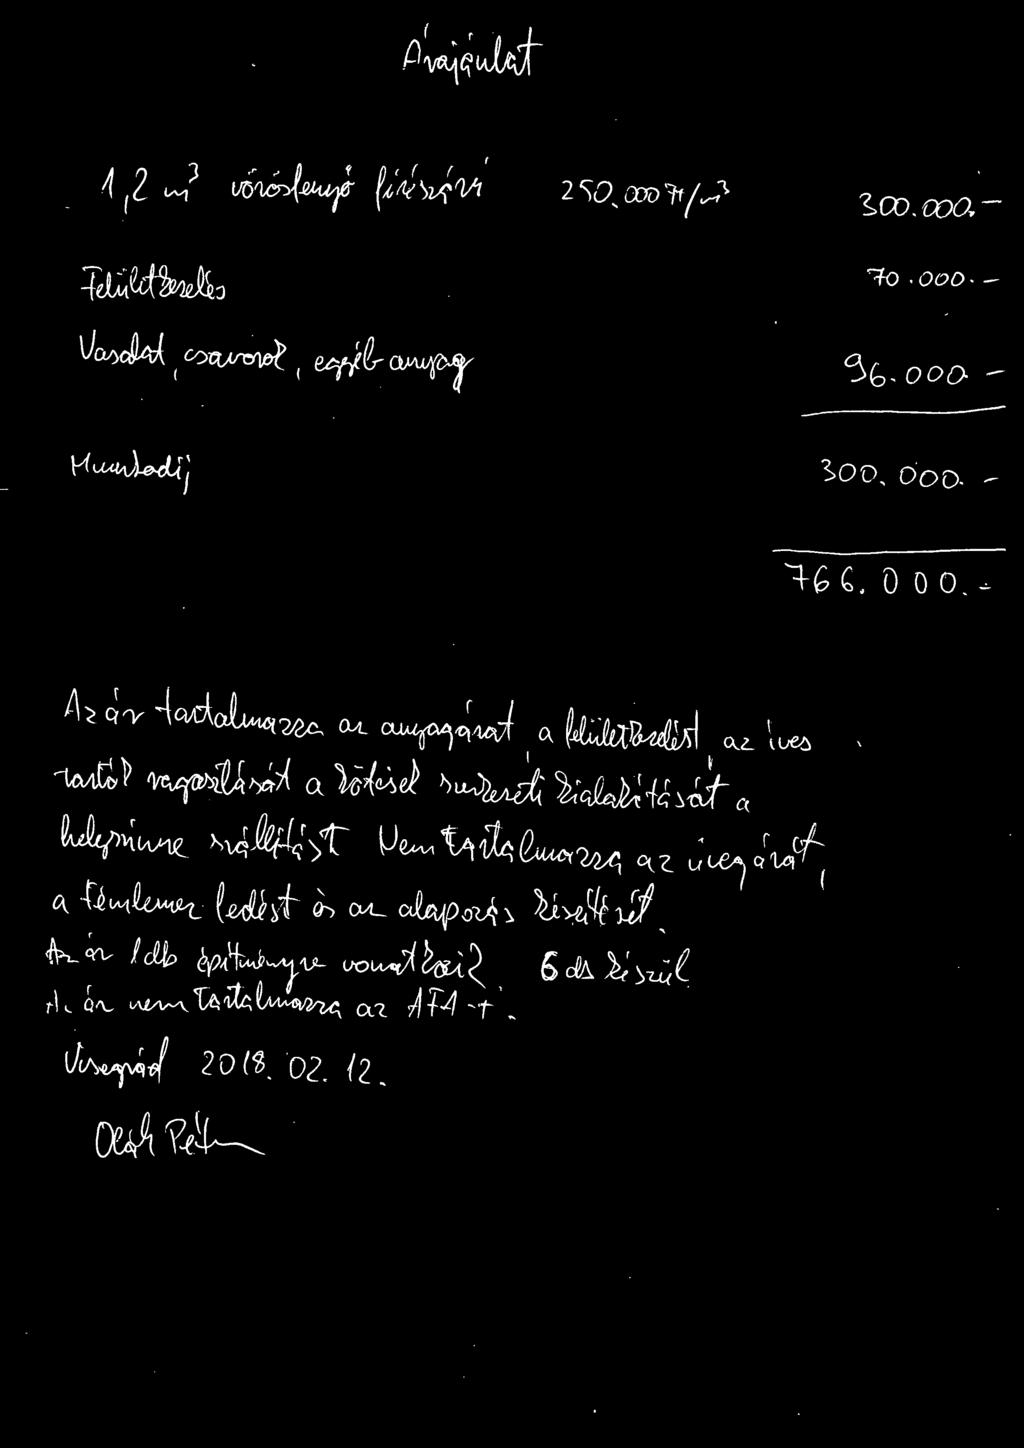 Árajánlat
1,2 m³ vörösfenyő fűrészárú 250.000 Ft/m³ 300.000.-
Felületkezelés 70.000.-
Vasalat, csavarok, egyéb anyag 96.000 -
Munkadíj 300.000. -
766.000.-
Az ár tartalmazza az anyagárat, a felületkezelést, az íves
tartók ragasztását a kötések szerkezeti kialakítását a
helyszínre szállítást Nem tartalmazza az üvegárát,
a fémlemez fedést és az alapozás készítését.
Az ár 1 db építményre vonatkozik 6 db készül
Az ár nem tartalmazza az ÁFA-t.
Visegrád 2018. 02. 12.
Oláh Péter